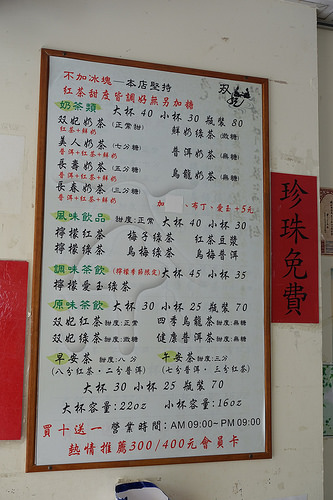 不加冰塊—本店堅持
双妃
紅茶甜度皆調好無另加糖
奶茶類 大杯 40 小杯 30 瓶裝 80
双妃奶茶(正常甜) 鮮奶綠茶(微糖)
紅茶+鮮奶
美人奶茶(七分糖) 普洱奶茶(無糖)
普洱+紅茶+鮮奶
長壽奶茶(五分糖) 烏龍奶茶(無糖)
普洱+紅茶+鮮奶
長春奶茶(三分糖)
普洱+紅茶+鮮奶
加 、布丁、愛玉+5元
風味飲品 甜度:正常 大杯 40 小杯 30
檸檬紅茶 梅子綠茶 紅茶豆漿
檸檬綠茶 烏梅綠茶 烏梅普洱
調味茶飲(檸檬季節限定)大杯 45 小杯 35
檸檬愛玉綠茶
原味茶飲 大杯 30 小杯 25 瓶裝 70
双妃紅茶 甜度:正常 四季烏龍茶 甜度:無糖
双妃綠茶 甜度:微糖 健康普洱茶 甜度:無糖
早安茶 甜度:八分 午安茶 甜度:三分
(八分紅茶·二分普洱) (七分普洱·三分紅茶)
大杯 30 小杯 25 瓶裝 70
大杯容量:22oz 小杯容量:16oz
買十送一 營業時間:AM 09:00~PM 09:00
熱情推薦300/400元會員卡
珍珠免費